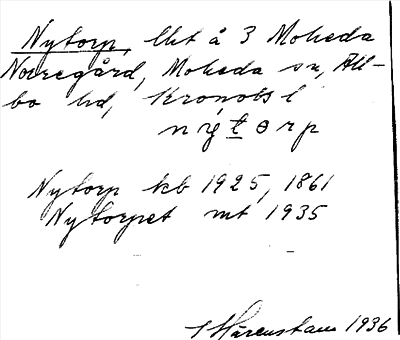 Nytorp, lht å 3 Moheda
Norregård, Moheda sn, All-
bo hd, Kronobs l
nytorp
Nytorp kb 1925, 1861
Nytorpet mt 1935
Hårenstam 1936